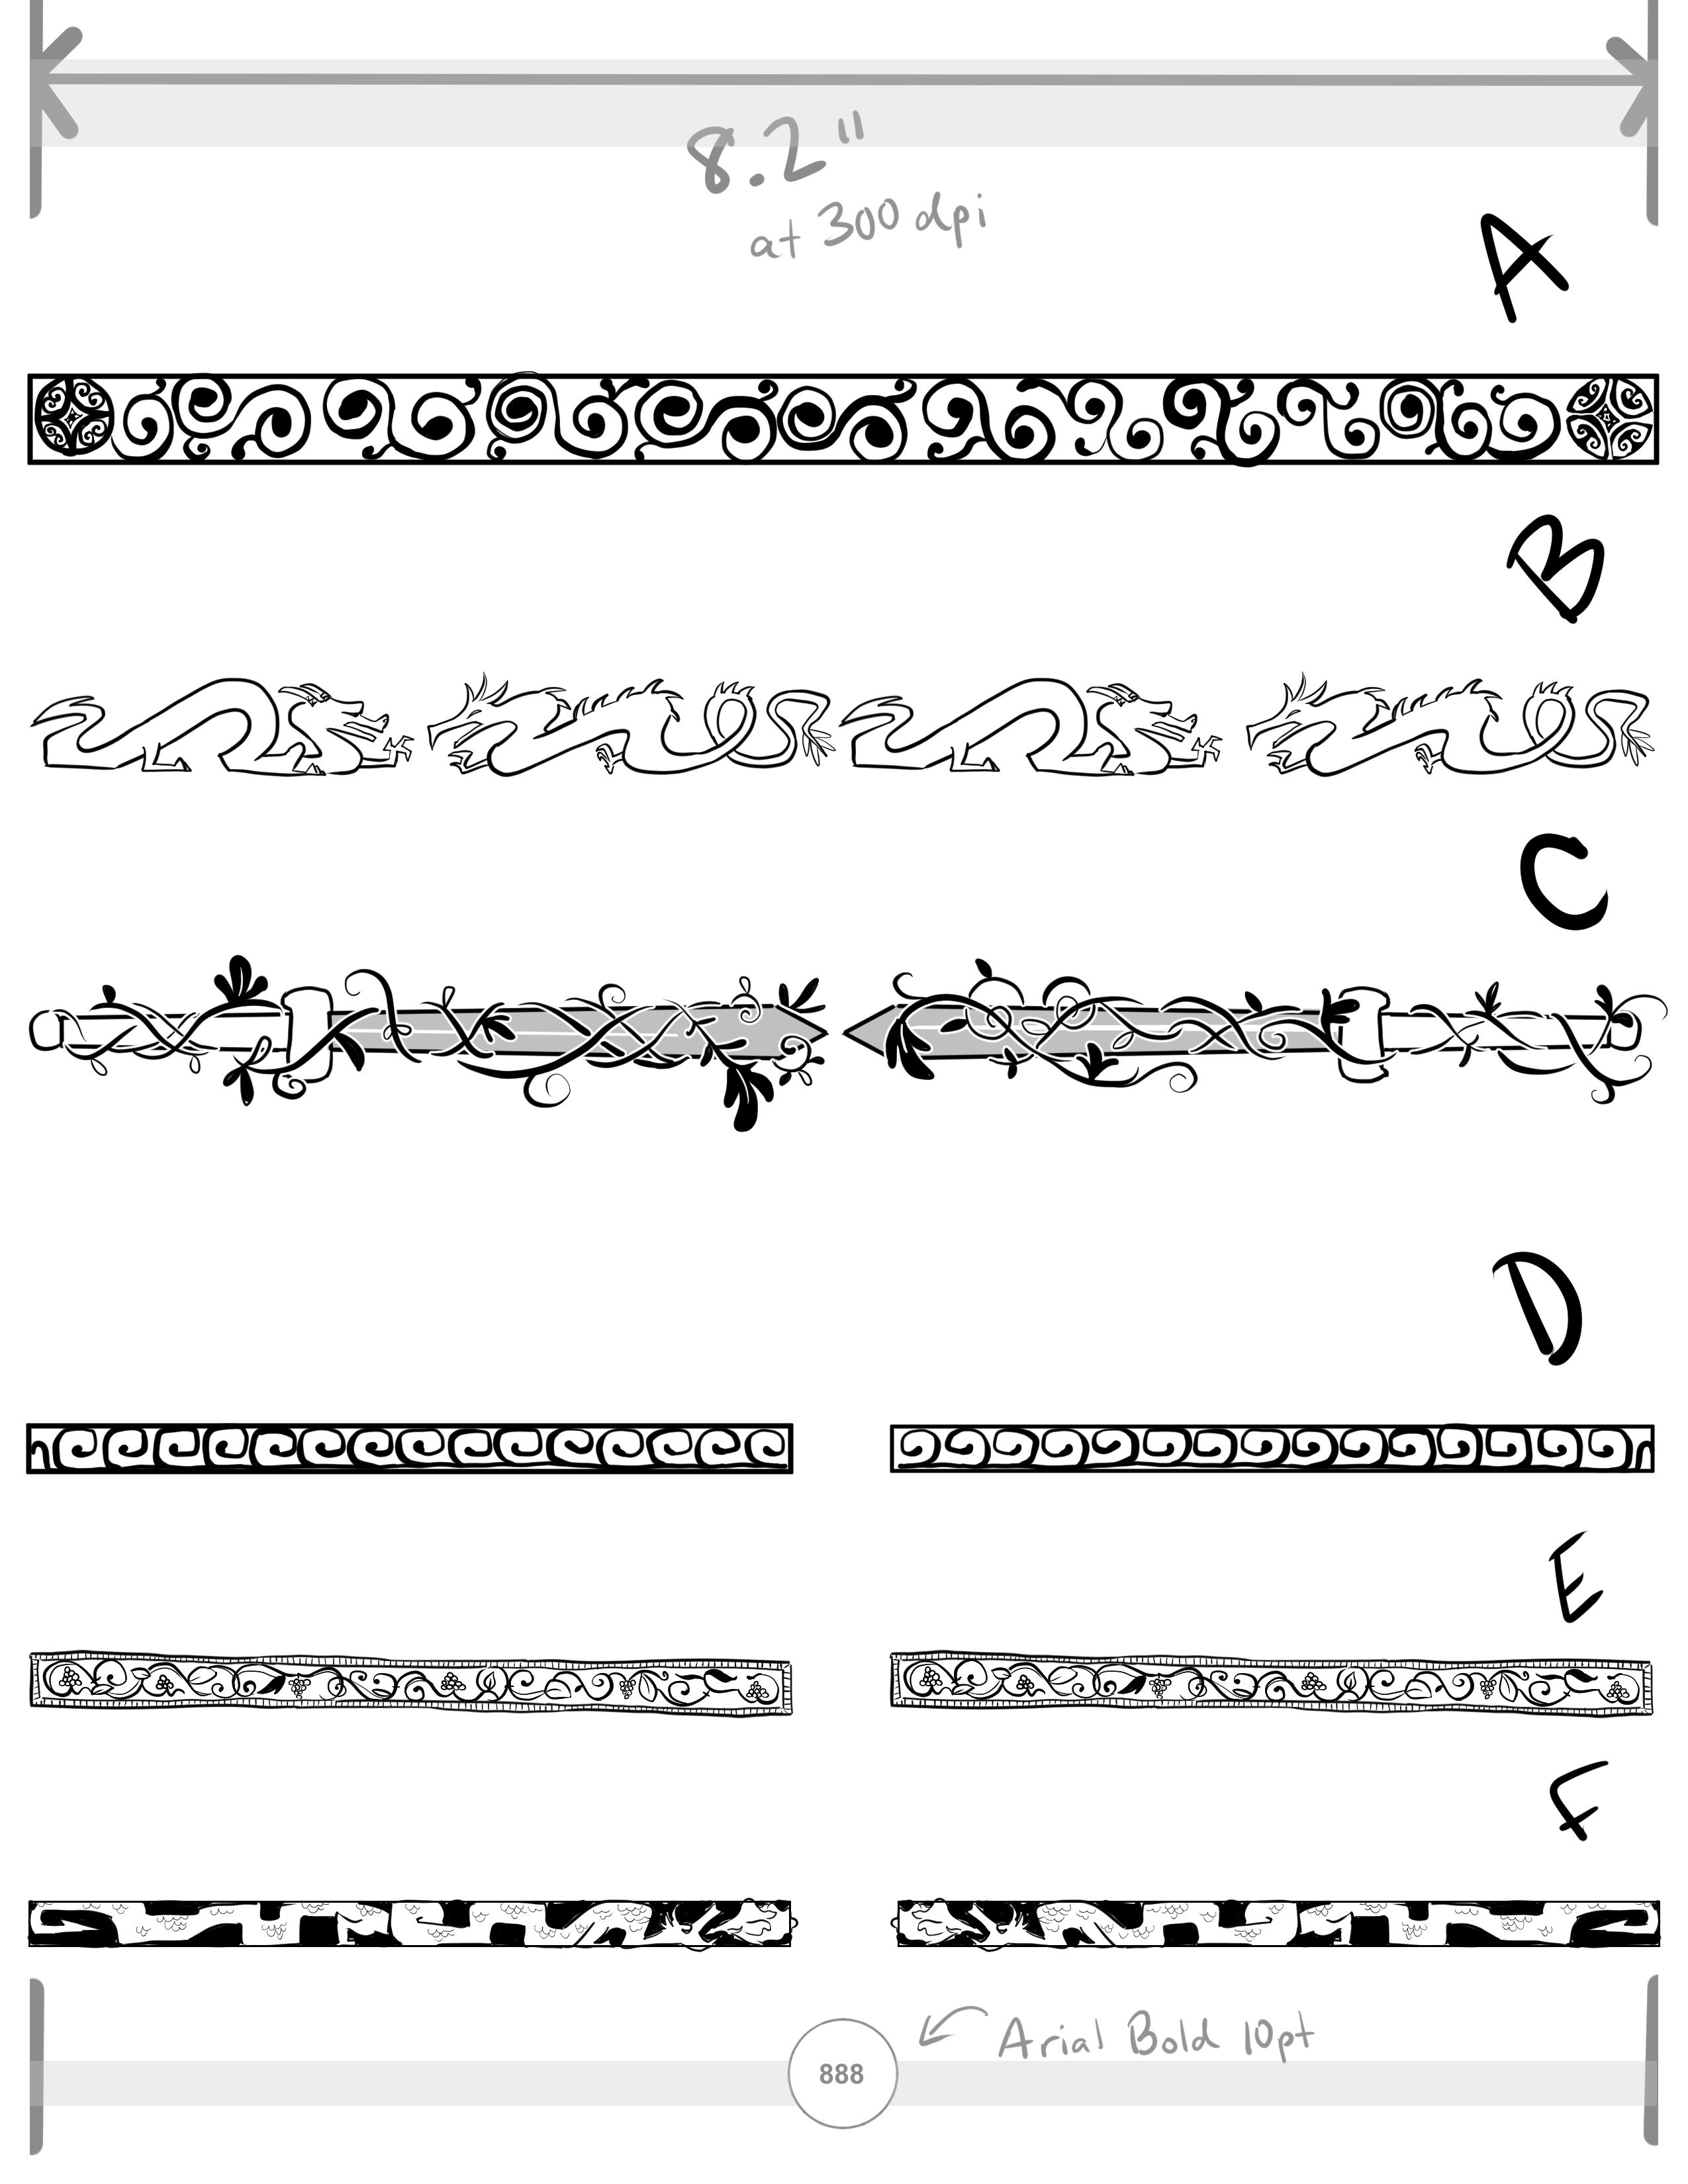 8.2"
at 300 dpi
A
B
C
D
E
F
Arial Bold 10pt
888